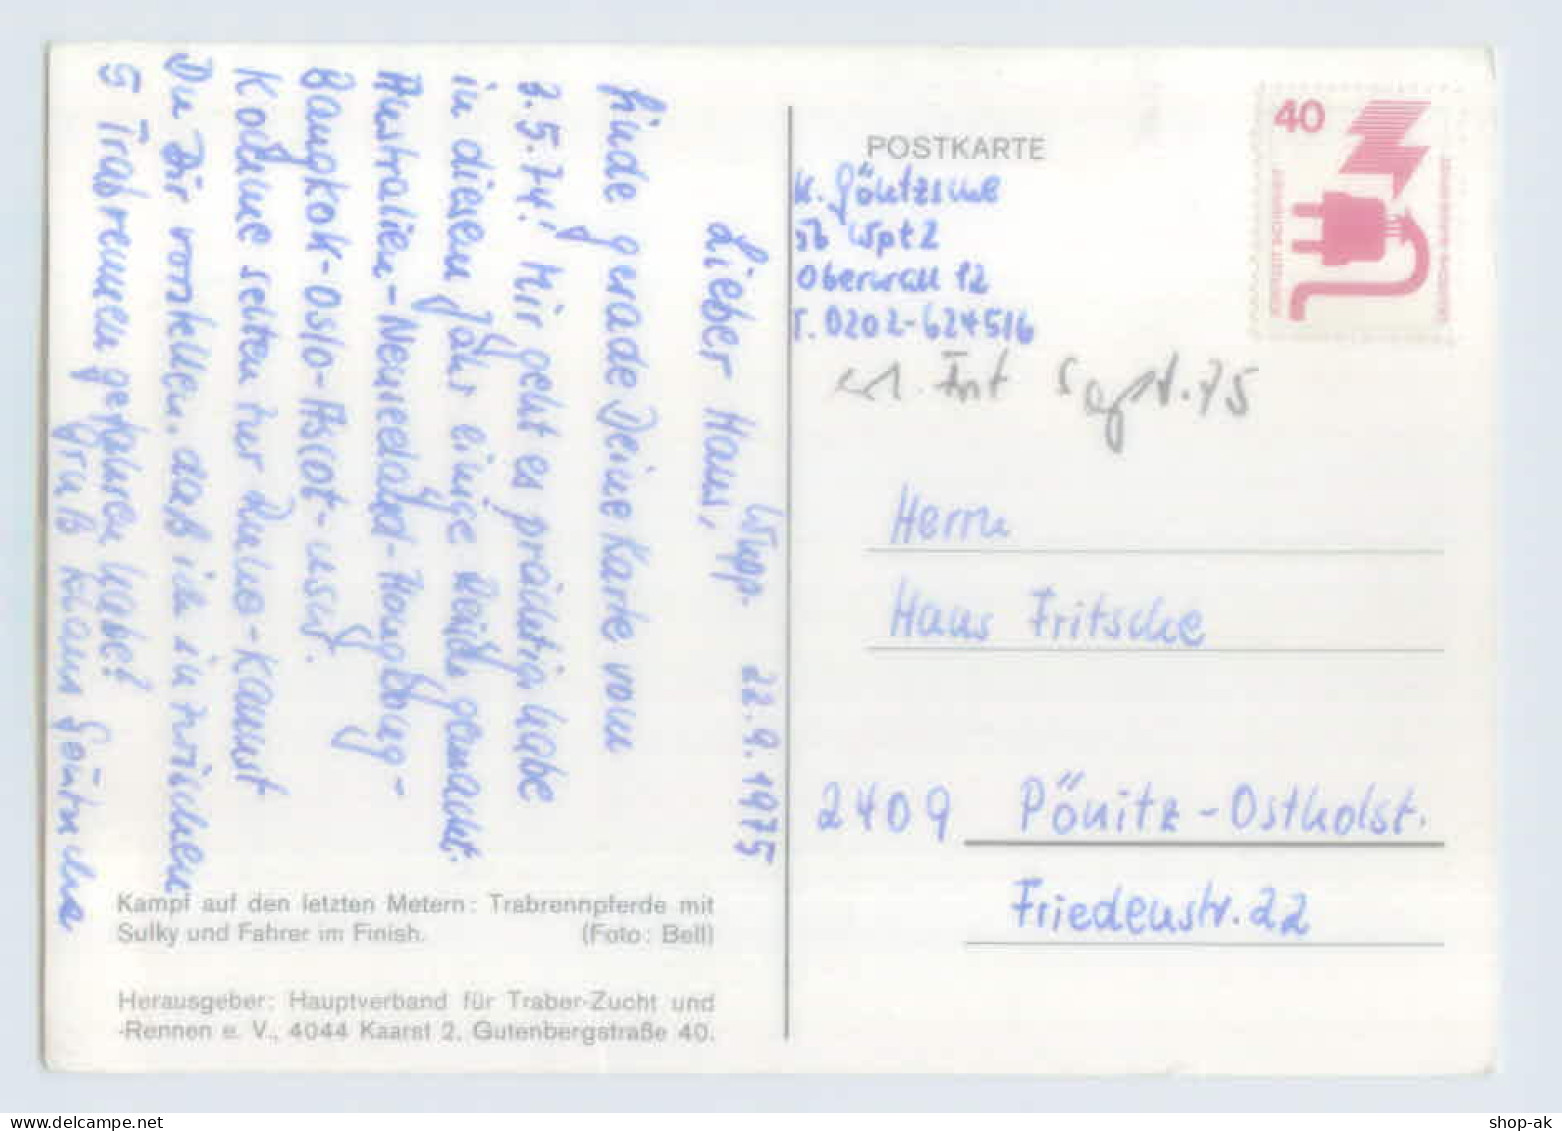 Wupp- 22.9.1975
Lieber Hans,
finde gerade Deine Karte vom
3.5.74! Mir geht es prächtig habe
in diesem Jahr einige Reisen gemacht.
Australien-Neuseeland-Hongkong-
Bangkok-Oslo-Ascot-usw.
Komme selten zur Ruhe-Kannst
Du Dir vorstellen, daß ich inzwischen
5 Trabrennen gefahren habe!
Gruß Klaus Göntzsche
Kampf auf den letzten Metern: Trabrennpferde mit
Sulky und Fahrer im Finish. (Foto: Bell)
Herausgeber: Hauptverband für Traber-Zucht und
-Rennen e. V., 4044 Kaarst 2, Gutenbergstraße 40.
POSTKARTE
K. Göntzsche
56 Wptl 2
Oberwall 12
T. 0202-624516
Sept. 75
40
Herrn
Hans Fritsche
2409 Pönitz-Ostholst.
Friedenstr. 22
shop-ak